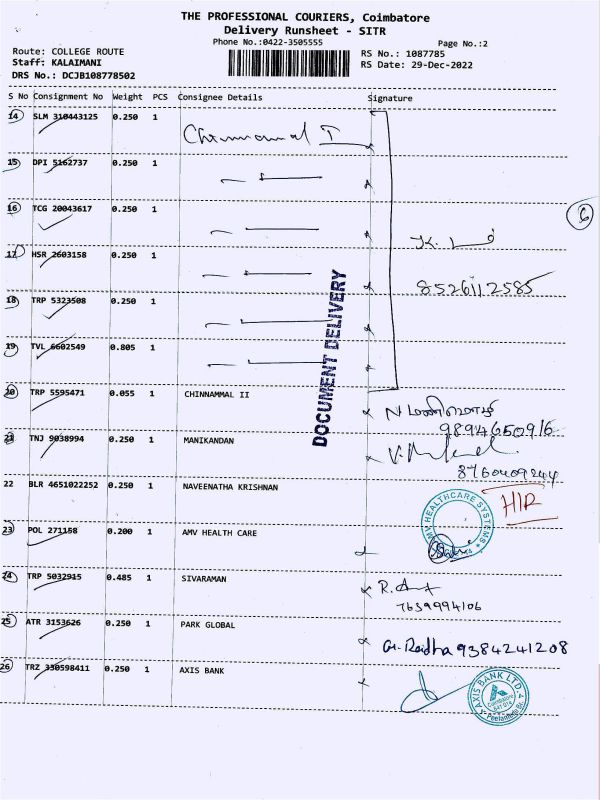 THE PROFESSIONAL COURIERS, Coimbatore
Delivery Runsheet - SITR
Phone No.:0422-3505555
Page No.:2
Route: COLLEGE ROUTE
RS No.: 1087785
Staff: KALAIMANI
RS Date: 29-Dec-2022
DRS No.: DCJB108778502
S No Consignment No Weight PCS Consignee Details Signature
14 SLM 310443125 0.250 1 Chinnamal I
15 DPI 5162737 0.250 1
16 TCG 20043617 0.250 1
6
17 HSR 2603158 0.250 1
8526112585
18 TRP 5323508 0.250 1
19 TVL 6602549 0.805 1
DOCUMENT DELIVERY
20 TRP 5595471 0.055 1 CHINNAMMAL II
9894650916
21 TNJ 9038994 0.250 1 MANIKANDAN
8760409244
22 BLR 4651022252 0.250 1 NAVEENATHA KRISHNAN
HIR
23 POL 271158 0.200 1 AMV HEALTH CARE
AMV HEALTHCARE SYSTEMS
24 TRP 5032915 0.485 1 SIVARAMAN
7639994106
25 ATR 3153626 0.250 1 PARK GLOBAL
G. Raidha 9384241208
26 TRZ 330598411 0.250 1 AXIS BANK
AXIS BANK LTD.
Coimbatore
Peelamedu Br.